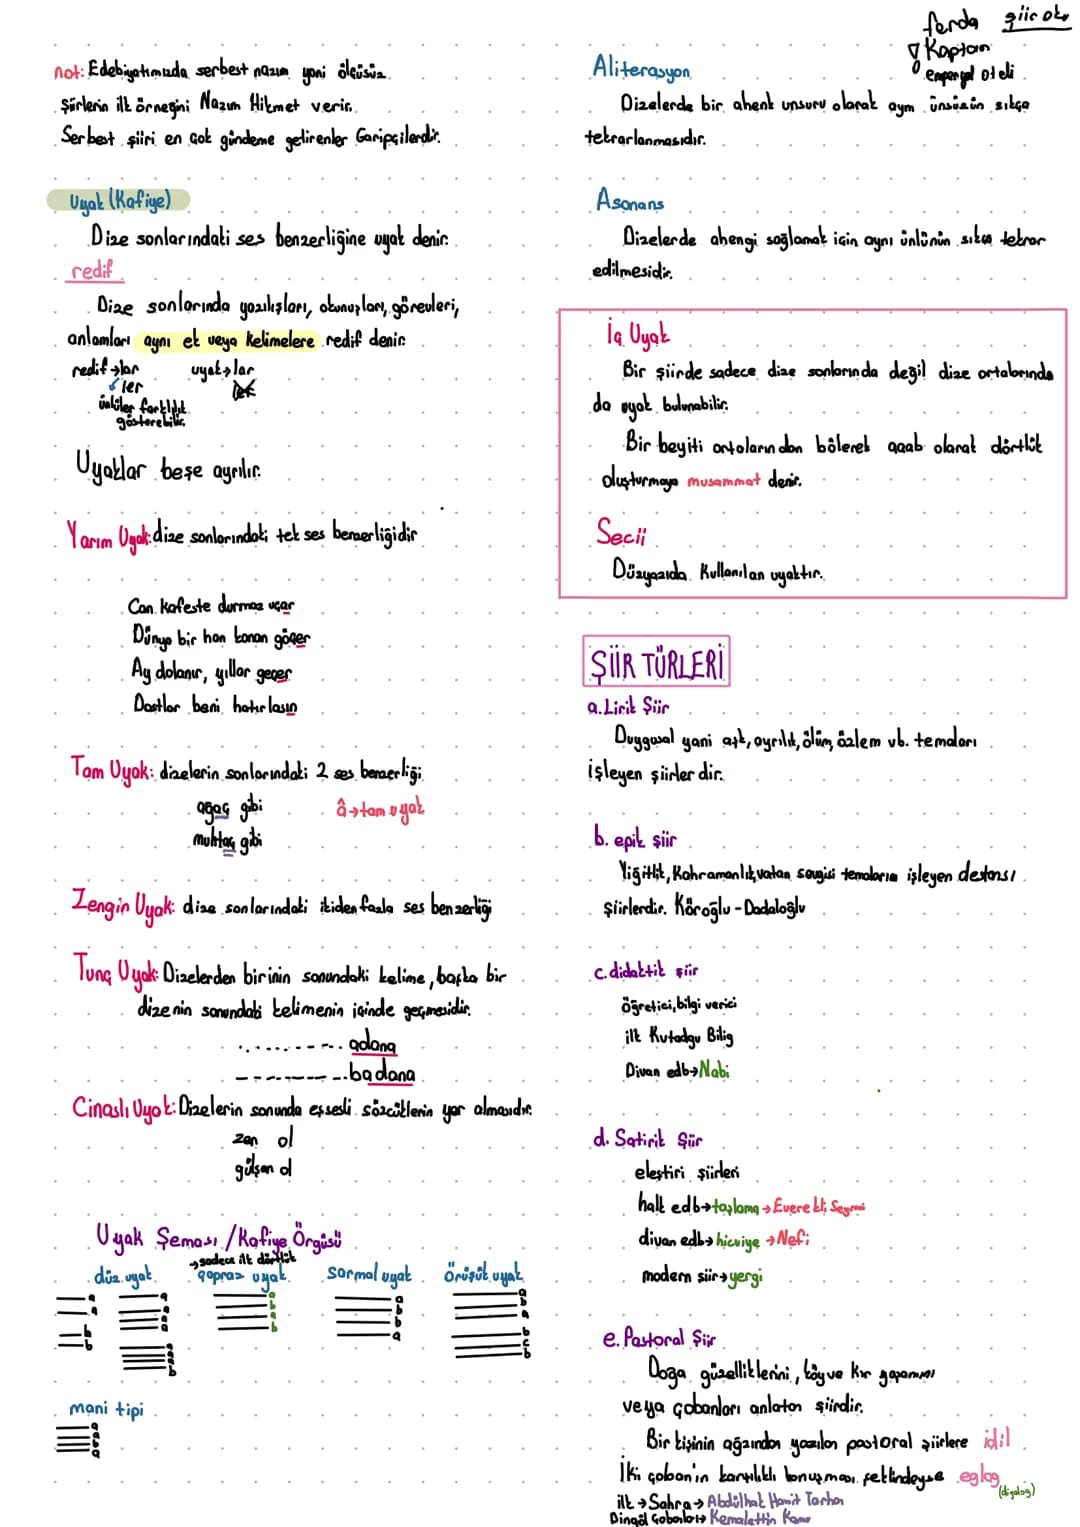 not: Edebiyatımızda serbest nazım yani ölçüsüz
şiirlerin ilk örneğini Nazım Hikmet verir.
Serbest şiiri en çok gündeme getirenler Garipçilerdir.
Uyak (Kafiye)
Dize sonlarındaki ses benzerliğine uyak denir.
redif
Dize sonlarında yazılışları, okunuşları, görevleri,
anlamları aynı ek veya kelimelere redif denir.
redif→lar uyak→lar
ler
ünlüler farklılık
gösterebilir.
Uyaklar beşe ayrılır.
Yarım Uyak: dize sonlarındaki tek ses benzerliğidir
Can kafeste durmaz uçar
Dünya bir han konan göçer
Ay dolanır, yıllar geçer
Dostlar beni hatırlasın
Tam Uyak: dizelerin sonlarındaki 2 ses benzerliği
ağaç gibi â→tam uyak
muhtaç gibi
Zengin Uyak: dize sonlarındaki ikiden fazla ses benzerliği
Tunç Uyak: Dizelerden birinin sonundaki kelime, başka bir
dizenin sonundaki kelimenin içinde geçmesidir.
adana
badana
Cinaslı Uyak: Dizelerin sonunda eşsesli sözcüklerin yer almasıdır.
zen ol
gülşen ol
Uyak Şeması / Kafiye Örgüsü
→sadece ilk dörtlük
düz uyak çapraz uyak sarmal uyak örüşük uyak
a a a a a
a a b b b
b a a b a
b a b a b
a c
a b
a
b
mani tipi
a
a
b
a
ferda şiir oku
Kaptan
emperyal oteli
Aliterasyon
Dizelerde bir ahenk unsuru olarak aynı ünsüzün sıkça
tekrarlanmasıdır.
Asonans
Dizelerde ahengi sağlamak için aynı ünlünün sıkça tekrar
edilmesidir.
İç Uyak
Bir şiirde sadece dize sonlarında değil dize ortalarında
da uyak bulunabilir.
Bir beyiti ortalarından bölerek aaab olarak dörtlük
oluşturmaya musammat denir.
Secii
Düzyazıda kullanılan uyaktır.
ŞİİR TÜRLERİ
a. Lirik Şiir
Duygusal yani aşk, ayrılık, ölüm, özlem vb. temaları
işleyen şiirler dir.
b. epik şiir
Yiğitlik, Kahramanlık, vatan sevgisi temalarını işleyen destansı
şiirlerdir. Köroğlu - Dadaloğlu
c. didaktik şiir
öğretici, bilgi verici
ilk Kutadgu Bilig
Divan edb→Nabi
d. Satirik Şiir
eleştiri şiirleri
halk edb→taşlama→Everekli Seyrani
divan edb→hicviye→Nefi
modern şiir→yergi
e. Pastoral Şiir
Doğa güzelliklerini, köy ve kır yaşamını
veya çobanları anlatan şiirdir.
Bir kişinin ağzından yazılan pastoral şiirlere idil
İki çoban'ın karşılıklı konuşması şeklindeyse eglog
(diyalog)
ilk→Sahra→Abdülhak Hamit Tarhan
Bingöl Çobanları→Kemalettin Kamu